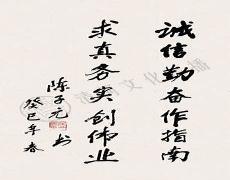 诚信勤奋作指南
求真务实创伟业
陈子元书
癸巳年春